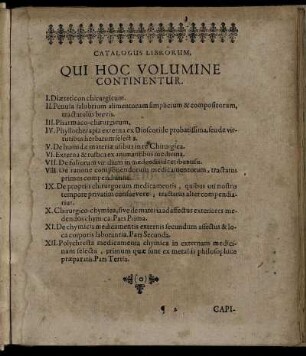 CATALOGUS LIBRORUM,
QUI HOC VOLUMINE
CONTINENTUR.
I. Diæteticon chirurgicum.
II. Penuria salubrium alimentorum simplicium & compositorum,
tractatulus brevis.
III. Pharmaco-chirurgicum.
IV. Phyllotherapia externa ex Dioscoride probatissima, seu de vir-
tutibus herbarum selecta.
V. De humida materia &
VI. Externa & rustica ex animantibus medicina.
VII. De
VIII. De ratione componendorum medicamentorum, tractatus
primus compendiarius.
IX. De propriis chirurgorum medicamentis, quibus uti nostro
tempore privatim consuevere, tractatus alter compendia-
rius.
X. Chirurgico-chymica, sive de materia ad affectus exteriores me-
dendos chemica: Pars Prima.
XI. De chymicis medicamentis externis secundum affectus & lo-
ca corporis laborantis. Pars Secunda.
XII. Polychresta medicamenta chymica in externam medici-
nam selecta, utimum quæ sunt ex metallis philosophicè
præparatis. Pars Tertia.
CAPI-